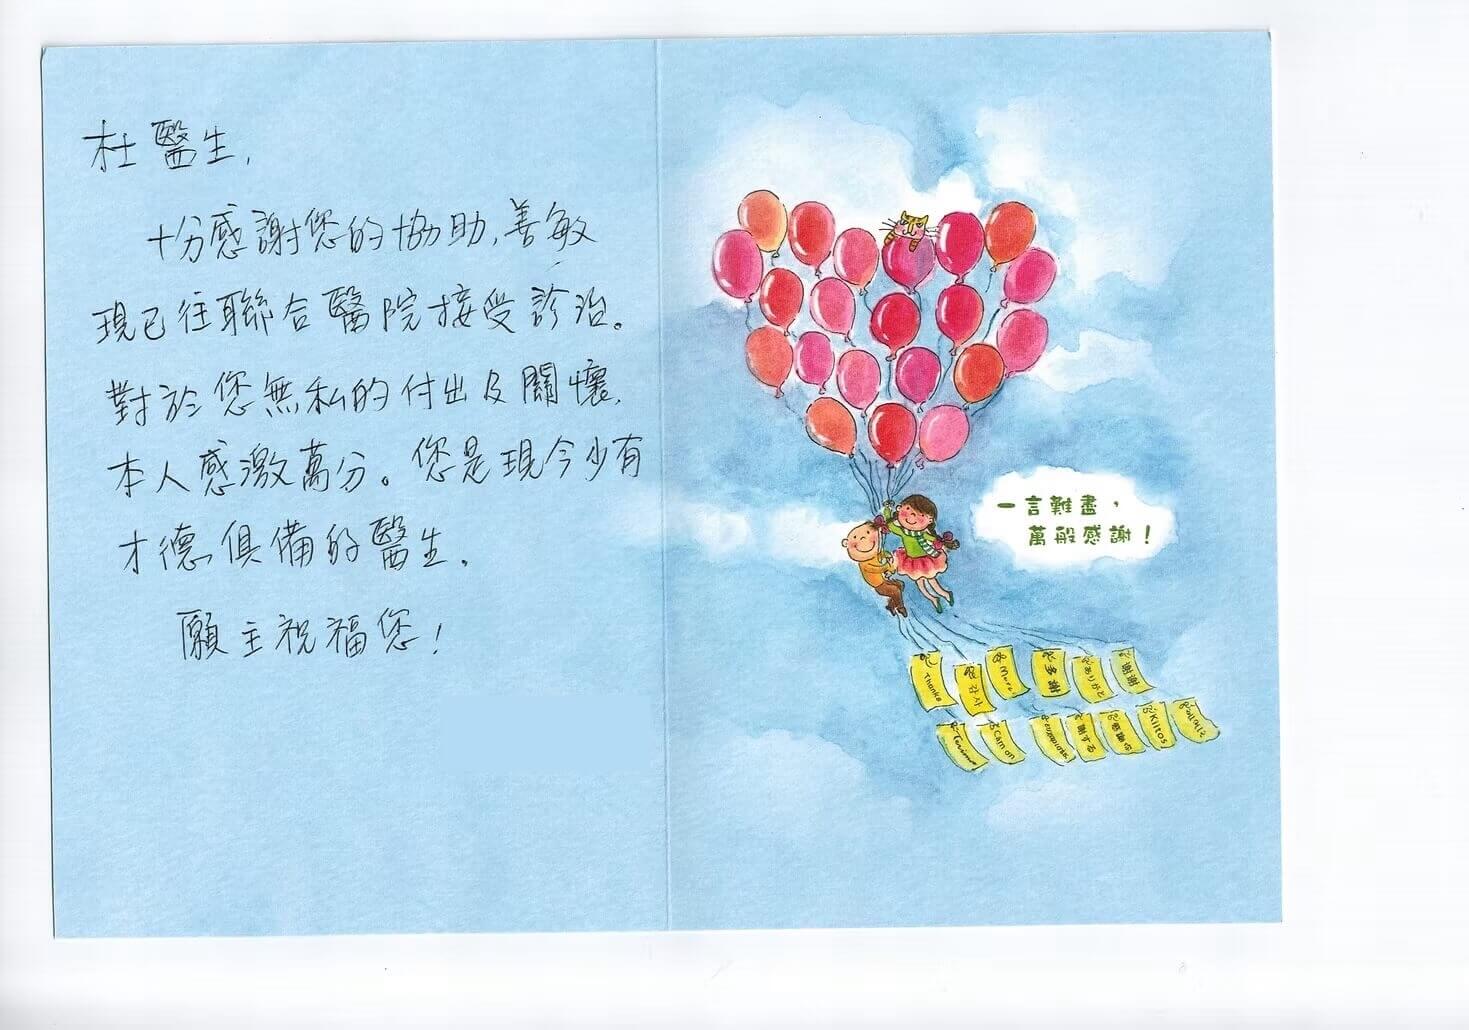 杜醫生,
十分感謝您的協助,善敏
現已往聯合醫院接受診治。
對於您無私的付出及關懷,
本人感激萬分。您是現今少有
才德俱備的醫生。
願主祝福您!
一言難盡，
萬般感謝！
Thanks
감사
Merci
多謝
ありがとう
謝謝
Cam on
感謝する
Kiitos